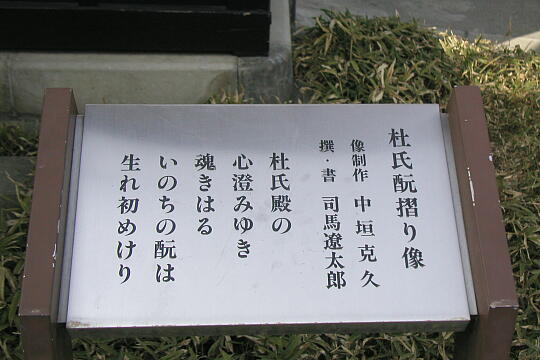 杜氏酛摺り像
像制作 中垣克久
撰・書 司馬遼太郎
杜氏殿の
心澄みゆき
魂きはる
いのちの酛は
生れ初めけり